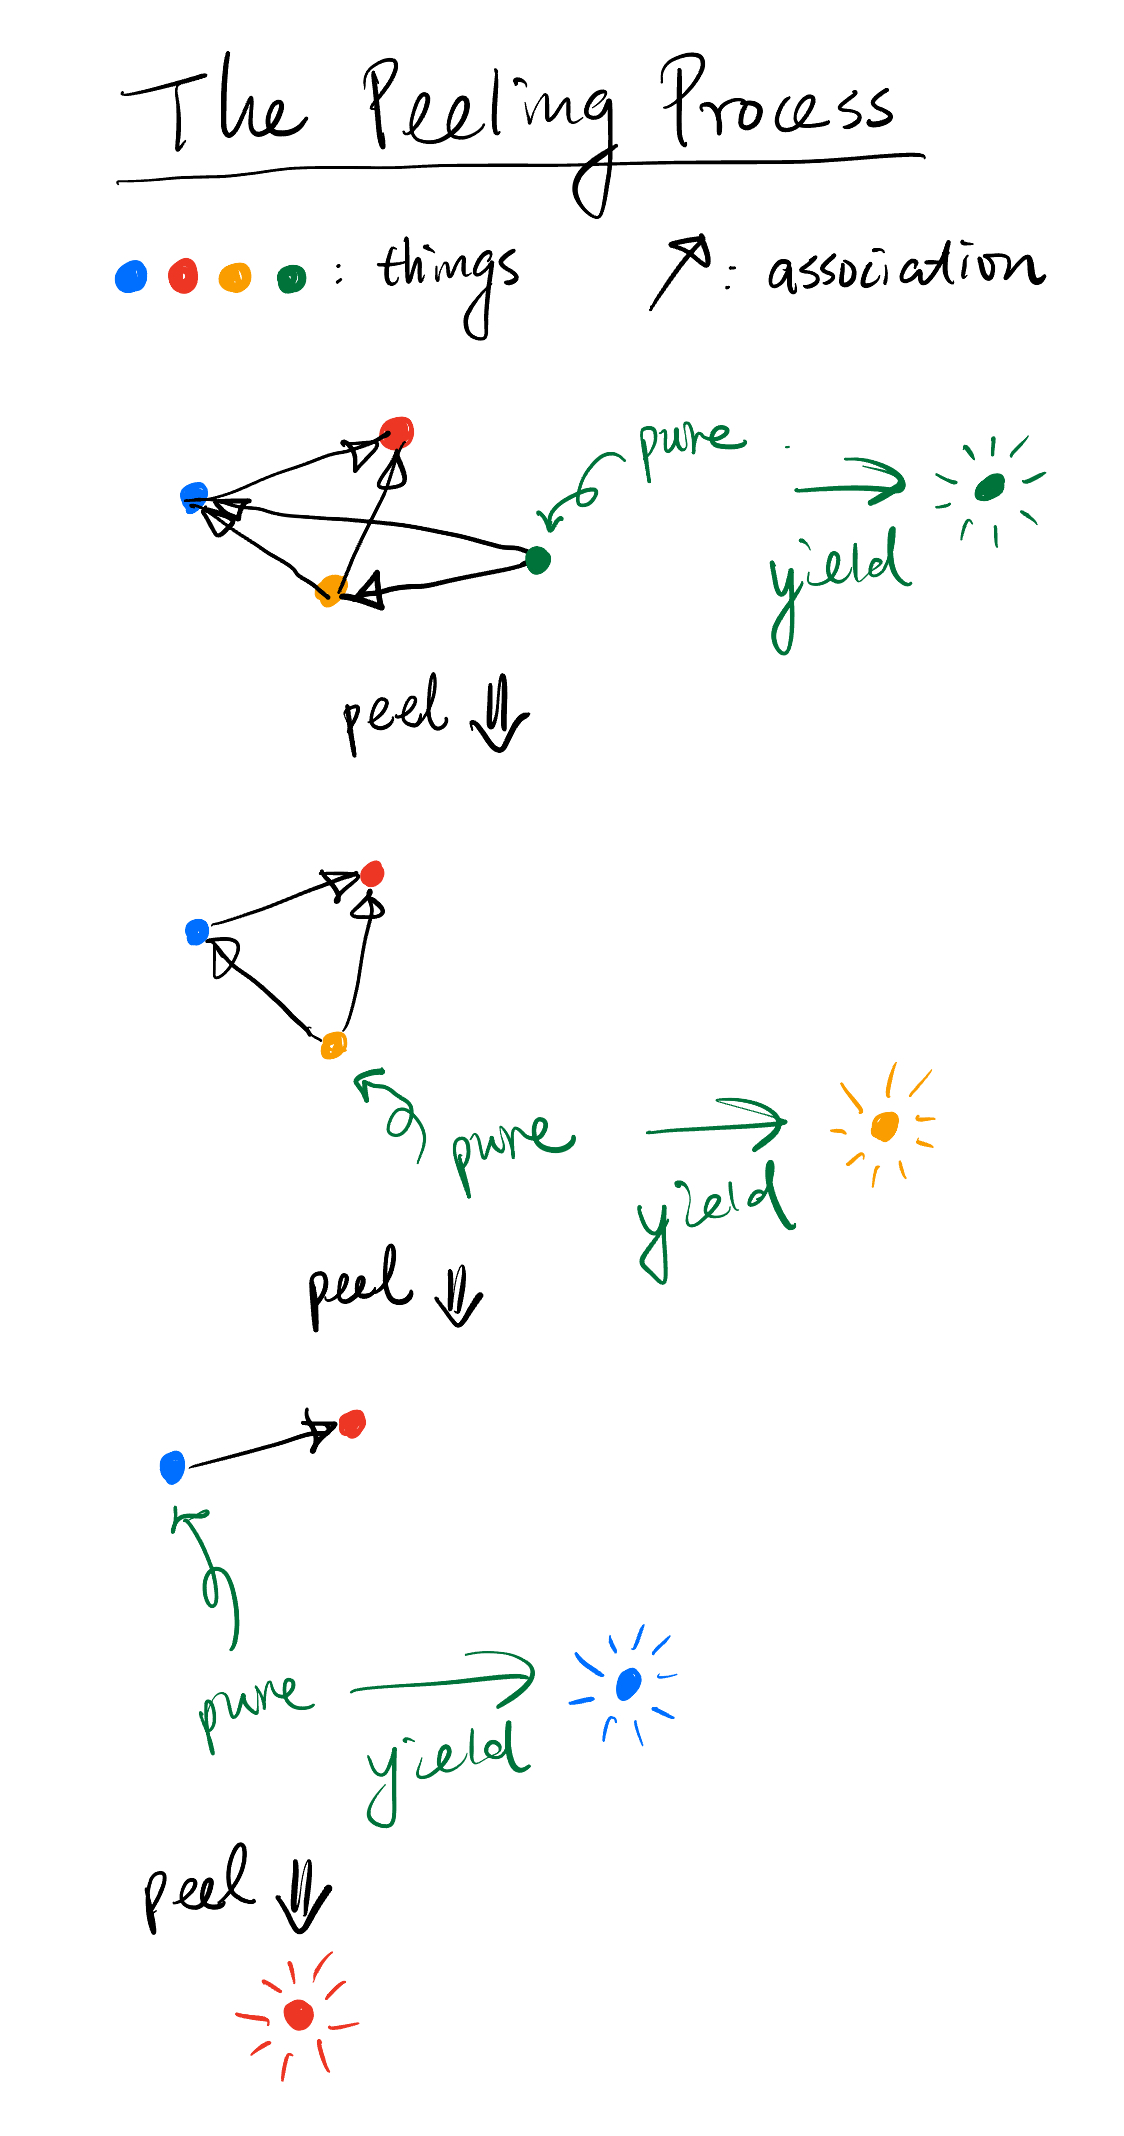 The Peeling Process
: things
: association
pure
yield
peel
pure
yield
peel
pure
yield
peel